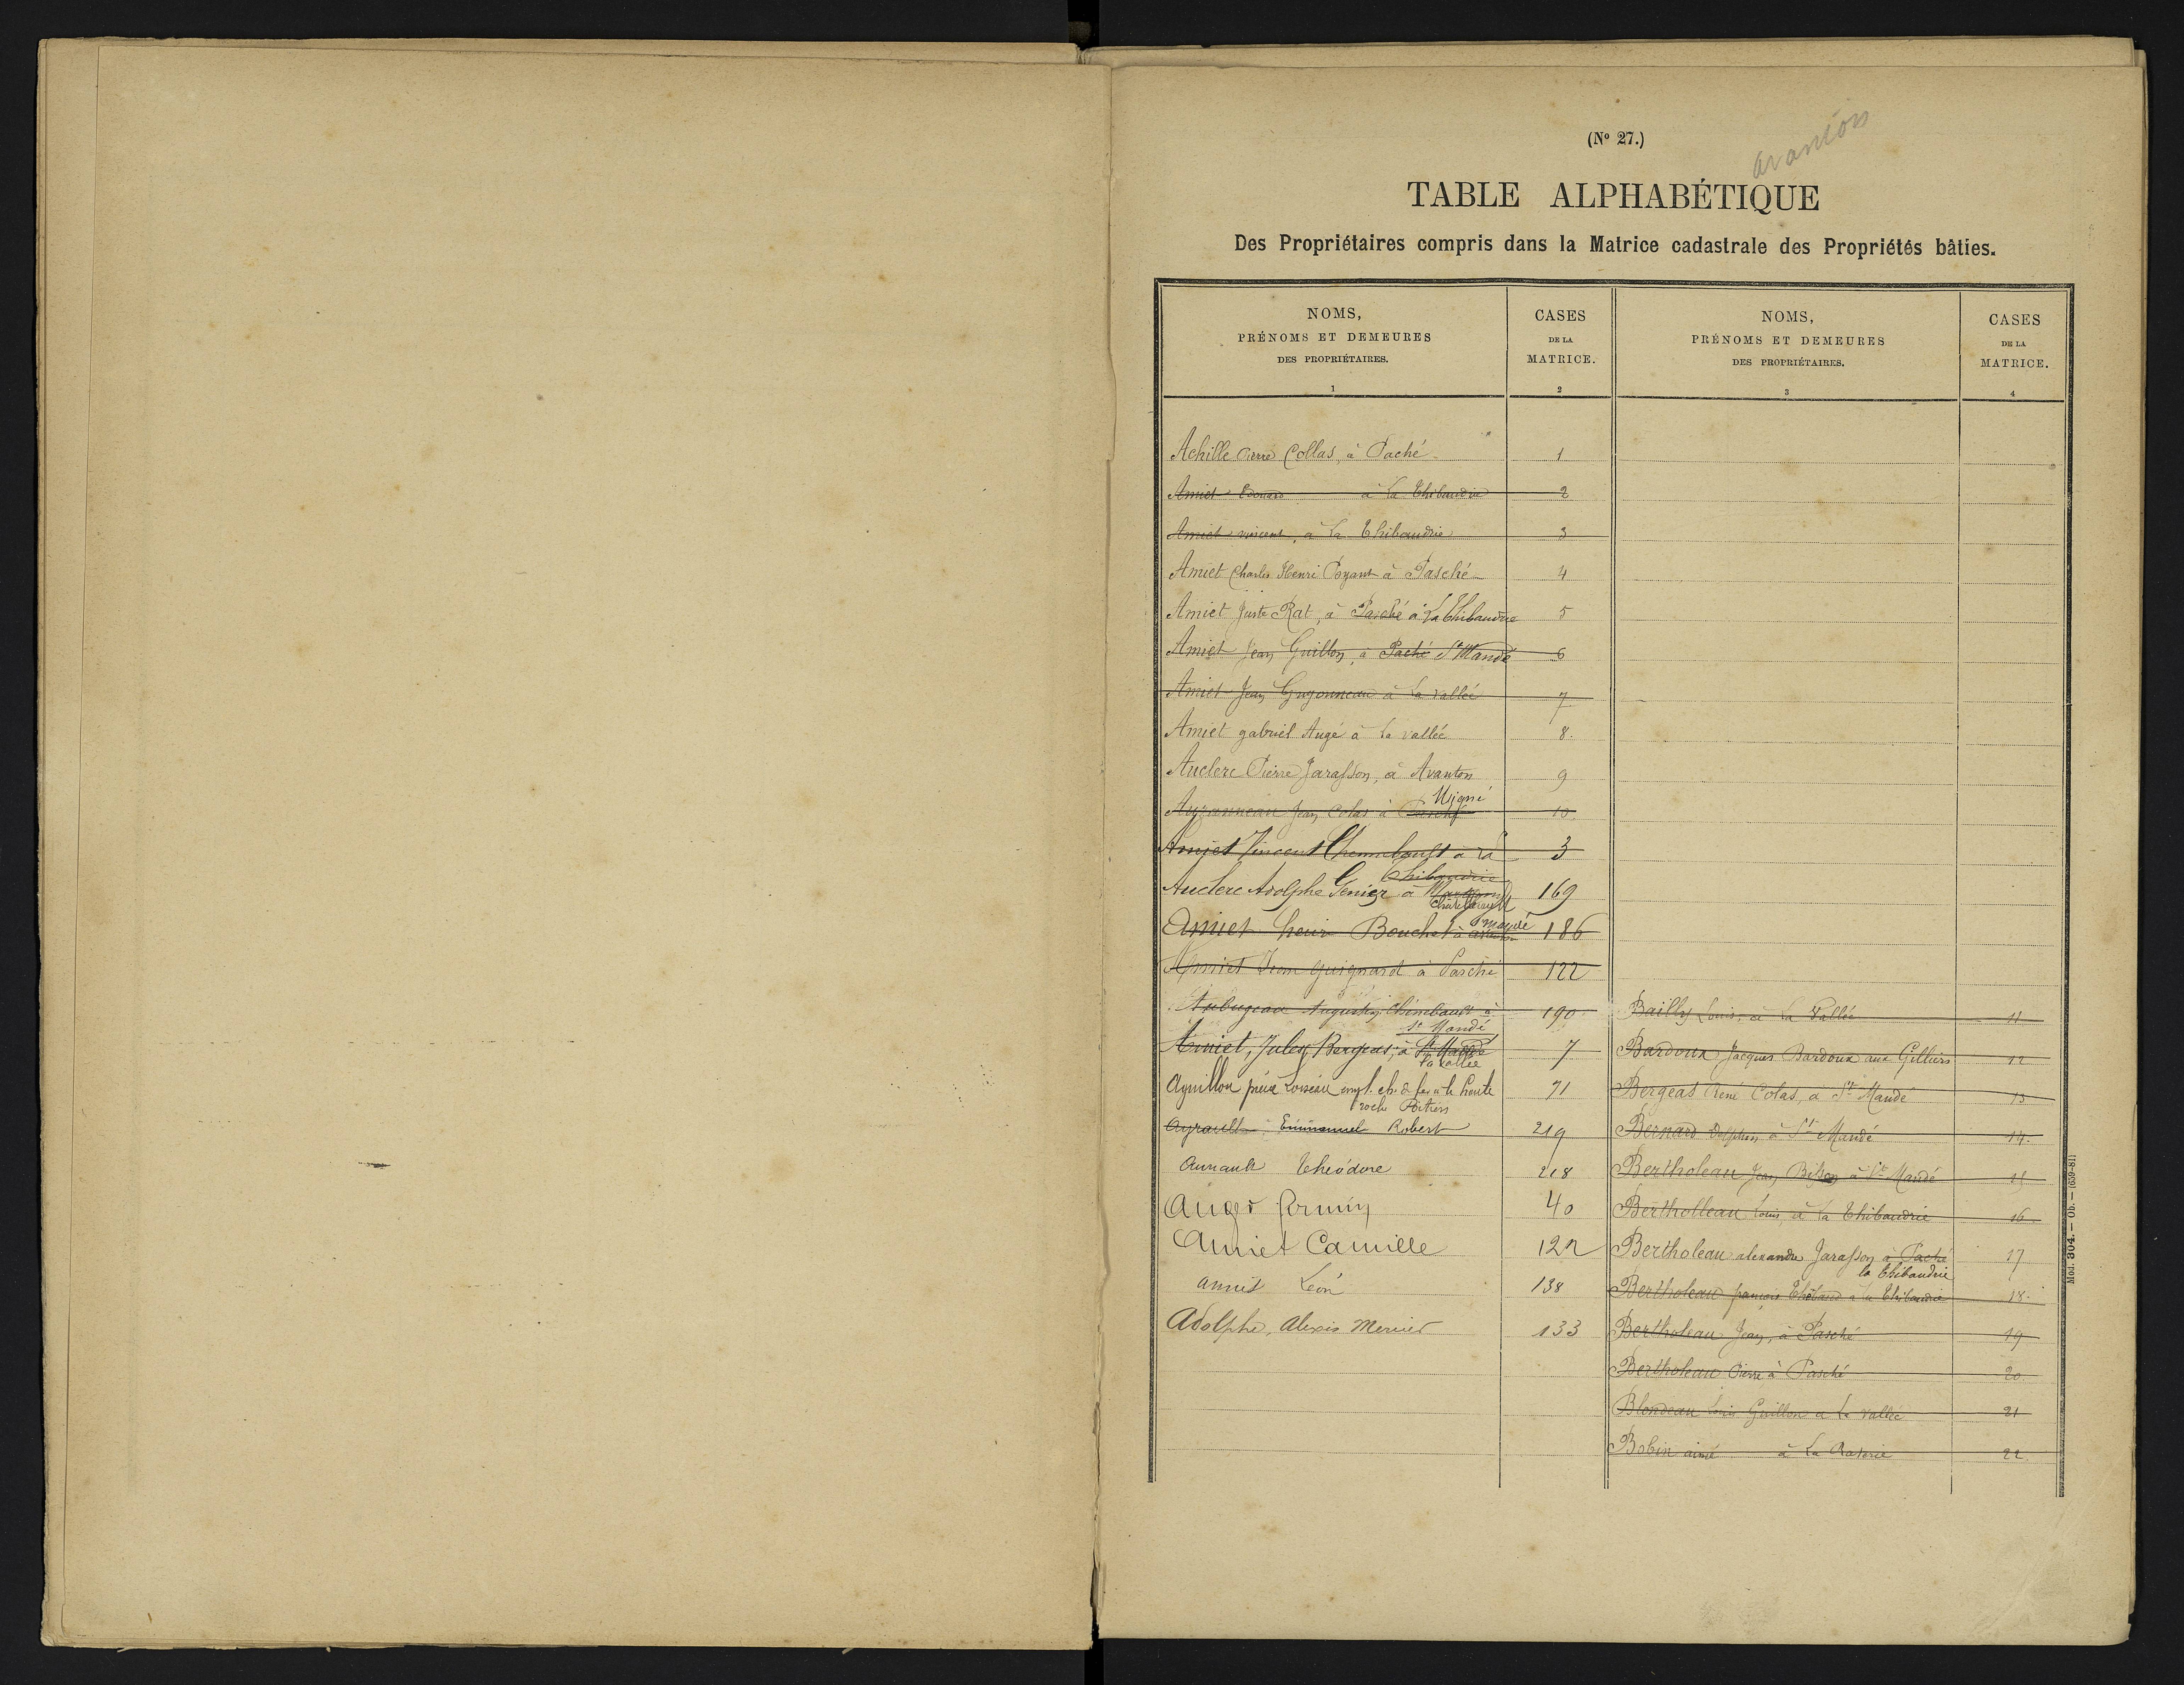 (Nº 27.)
Avanton
TABLE ALPHABÉTIQUE
Des Propriétaires compris dans la Matrice cadastrale des Propriétés bâties.
NOMS, PRÉNOMS ET DEMEURES DES PROPRIÉTAIRES. 1
CASES DE LA MATRICE. 2
NOMS, PRÉNOMS ET DEMEURES DES PROPRIÉTAIRES. 3
CASES DE LA MATRICE. 4
Achille Pierre Collas, à Paché 1
Amiet Edouard à La Thibaudrie 2
Amiet vincent, à La Thibaudrie 3
Amiet Charles Henri Poyant à Pasché 4
Amiet Juste Rat, à Pasché à La Thibaudrie 5
Amiet Jean Guillon, à Paché St Mandé 6
Amiet Jean Guyonneau à La vallée 7
Amiet gabriel Augé à La vallée 8.
Auclerc Pierre Jarasson, à Avanton 9
Migné
Ayranneau Jean Colas à Pasché 10
Amiet Vincent à La 3
Thibaudrie
Auclerc Adolphe à 169
Chatellerault
Amiet henri Bouchet à Avanton St Mandé 186
Amiet Jean Guignard à Pasché 122
Aubugeau Augustin Thimbault à 190
St Mandé
Amiet, Jules, Bergeas, à St Mandé 7
La Vallée
Aguillon Loiseau empl. ch. de fer à la haute 71
roche Poitiers
Ayrault Emmanuel Robert 219
Aunault Théodore 218
Auger Firmin 40
Amiet Camille 122
Amiet Léon 138
Adolphe, Alexis Mercier 133
Bailly Louis, à La Vallée 11
Bardoux Jacques Bardoux aux Gilliers 12
Bergeas René Colas, à St Mandé 13
Bernard Delphin à St Mandé 14.
Bertholeau Jean à St Mandé 15
Bertholleau Louis, à La Thibaudrie 16
Bertholeau alexandre Jarasson à Paché 17
la Thibaudrie
Bertholeau françois Thébaud à la Thibaudrie 18.
Bertholeau Jean, à Pasché 19
Bertholeau Pierre à Pasché 20
Blondeau Louis Guillon à La vallée 21
Bobin aimé à La Raterie 22.
Mod. 304. — Ob. — (659-81)